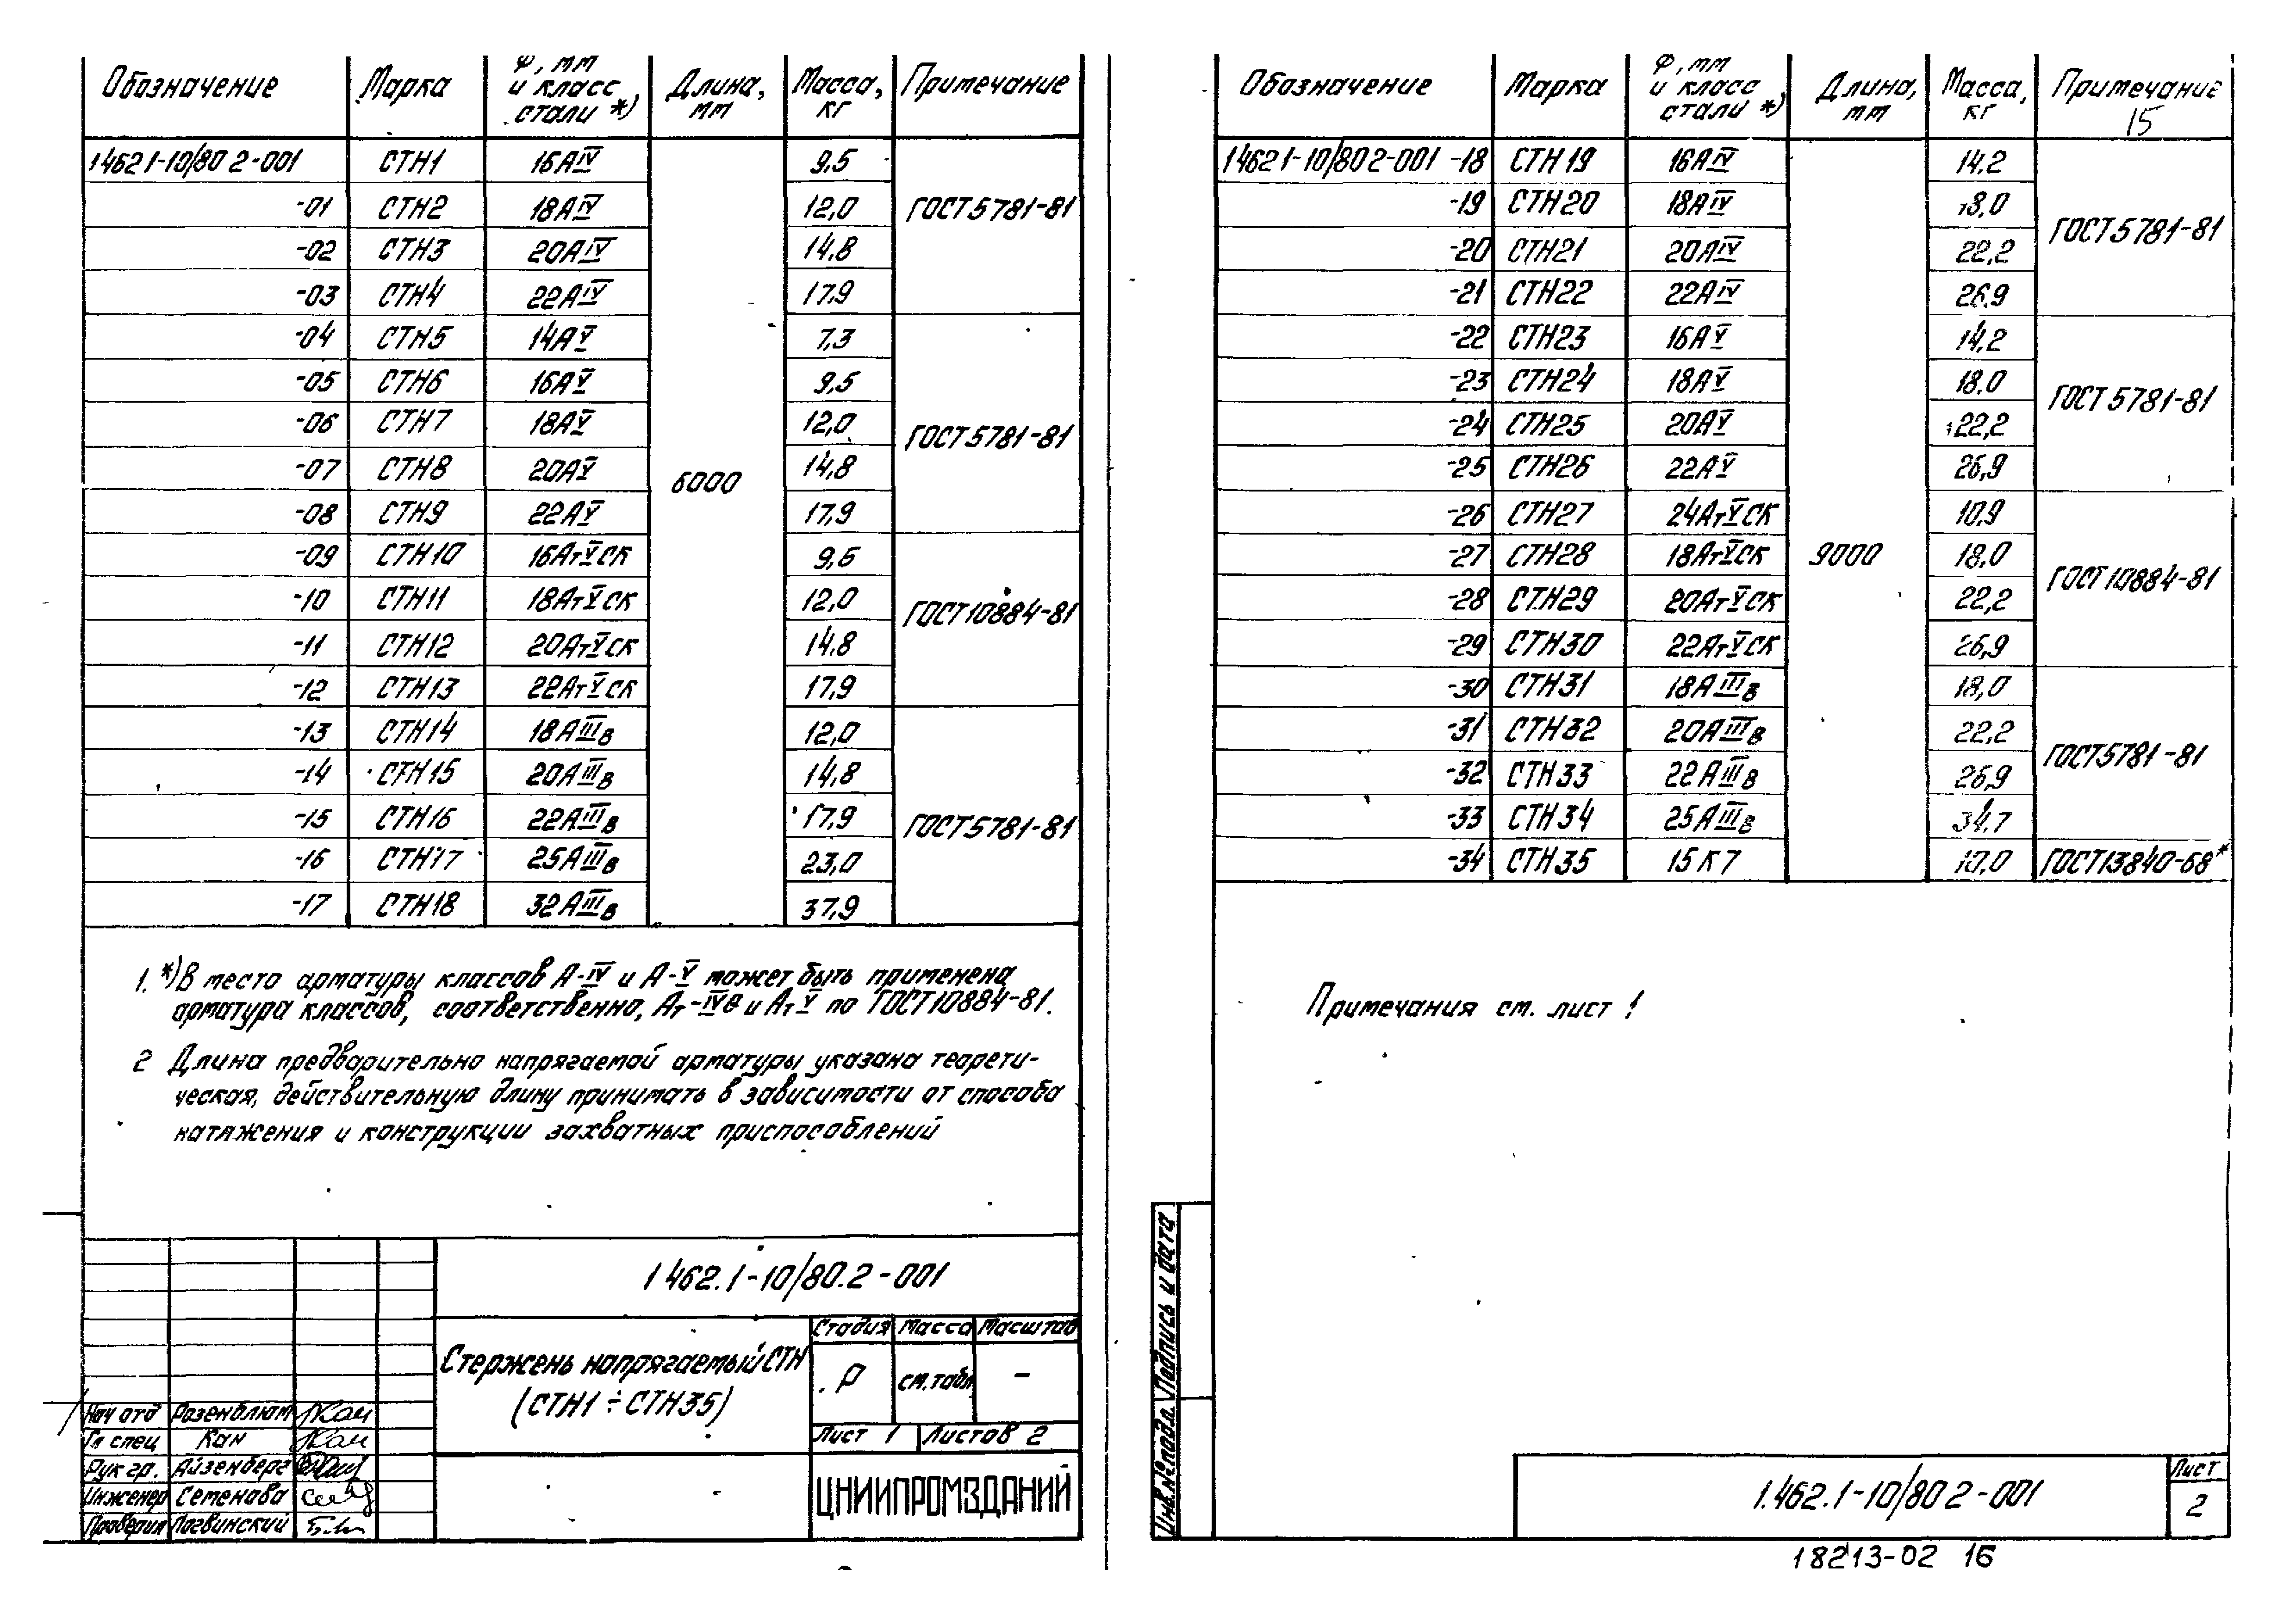 Обозначение Марка Ф, мм и класс стали *) Длина, мм Масса, кг Примечание
1 462 1-10/80 2-001 СТН1 16АIV 6000 9,5 ГОСТ 5781-81
-01 СТН2 18АIV 12,0
-02 СТН3 20АIV 14,8
-03 СТН4 22АIV 17,9
-04 СТН5 14АV 7,3 ГОСТ 5781-81
-05 СТН6 16АV 9,5
-06 СТН7 18АV 12,0
-07 СТН8 20АV 14,8
-08 СТН9 22АV 17,9
-09 СТН10 16АтVСК 9,5 ГОСТ 10884-81
-10 СТН11 18АтVСК 12,0
-11 СТН12 20АтVСК 14,8
-12 СТН13 22АтVСК 17,9
-13 СТН14 18АIIIв 12,0 ГОСТ 5781-81
-14 СТН15 20АIIIв 14,8
-15 СТН16 22АIIIв 17,9
-16 СТН17 25АIIIв 23,0
-17 СТН18 32АIIIв 37,9
1. *) В место арматуры классов А-IV и А-V может быть применена
арматура классов, соответственно, Ат-IVС и АтV по ГОСТ 10884-81.
2 Длина предварительно напрягаемой арматуры указана теорети-
ческая, действительную длину принимать в зависимости от способа
натяжения и конструкции захватных приспособлений
1 462.1-10/80.2-001
Стержень напрягаемый СТН
(СТН1 ÷ СТН35)
Стадия Масса Масштаб
Р см.табл –
Лист 1 Листов 2
ЦНИИПРОМЗДАНИЙ
Нач отд Розенблюм
Гл спец Кан
Рук гр. Айзенберг
Инженер Семенова
Проверил Логвинский
Обозначение Марка Ф, мм и класс стали *) Длина, мм Масса, кг Примечание
15
1 462 1-10/80 2-001 -18 СТН19 16АIV 9000 14.2 ГОСТ 5781-81
-19 СТН20 18АIV 18,0
-20 СТН21 20АIV 22,2
-21 СТН22 22АIV 26,9
-22 СТН23 16АV 14,2 ГОСТ 5781-81
-23 СТН24 18АV 18,0
-24 СТН25 20АV 22,2
-25 СТН26 22АV 26,9
-26 СТН27 24АтVСК 10,9 ГОСТ 10884-81
-27 СТН28 18АтVСК 18,0
-28 СТН29 20АтVСК 22,2
-29 СТН30 22АтVСК 26,9
-30 СТН31 18АIIIв 18,0 ГОСТ 5781-81
-31 СТН32 20АIIIв 22,2
-32 СТН33 22АIIIв 26,9
-33 СТН34 25АIIIв 34,7
-34 СТН35 15К7 10,0 ГОСТ 13840-68*
Примечания см. лист 1
Инв.№ подл. Подпись и дата
1.462.1-10/80 2-001
Лист
2
18213-02 16